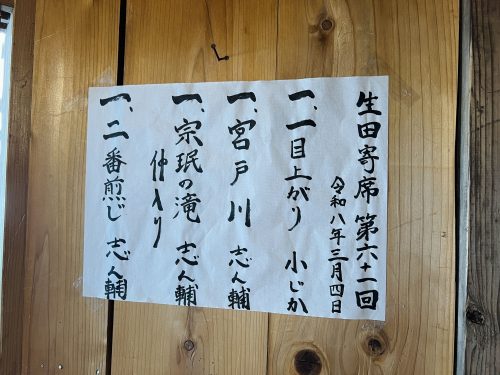 生田寄席 第六十一回
令和八年三月四日
一、一目上がり 小じか
一、宮戸川 志ん輔
一、宗珉の滝 志ん輔
仲入り
一、二番煎じ 志ん輔